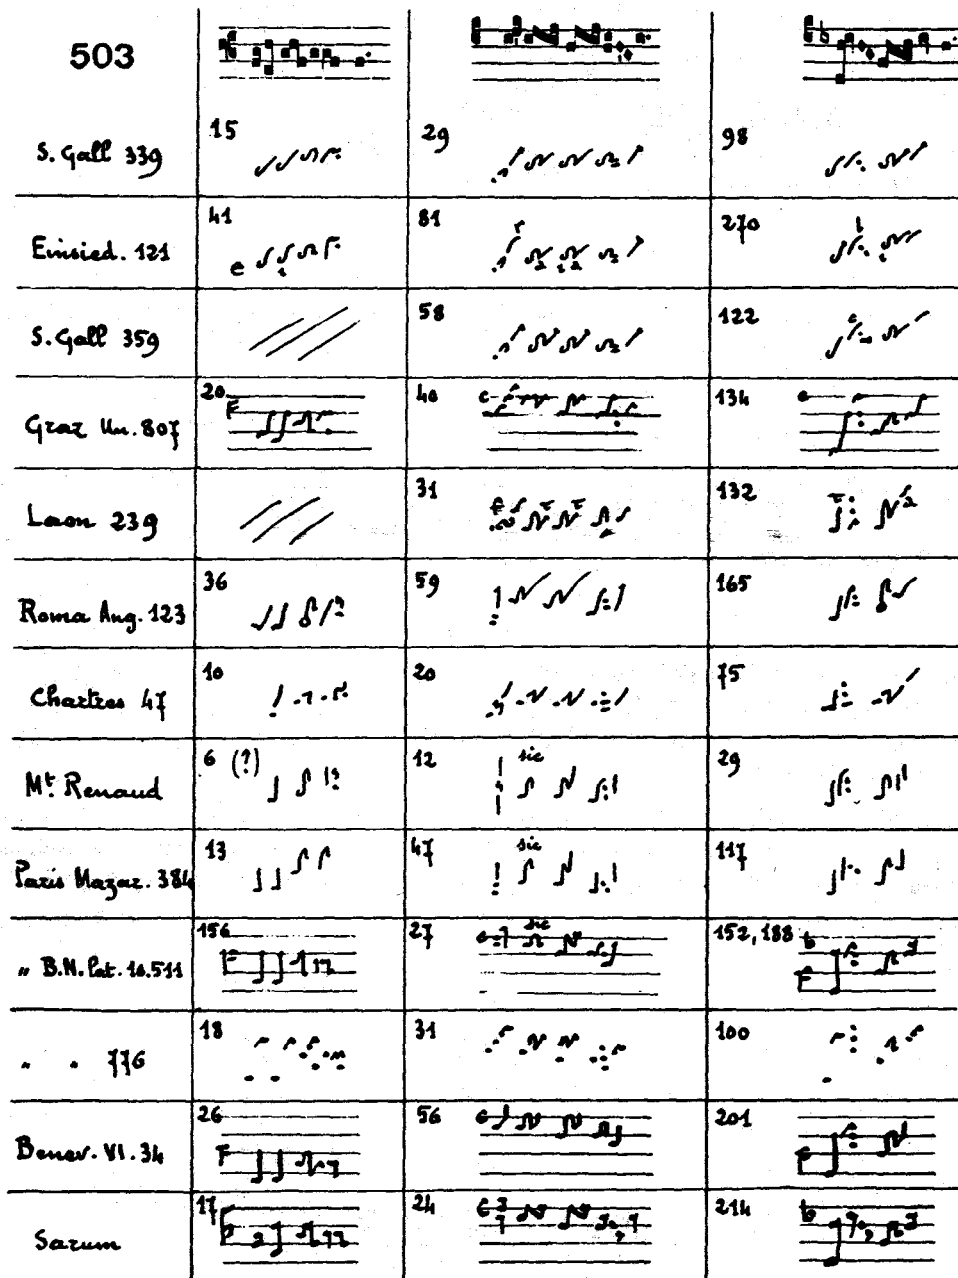 503
S. Gall 339 15 29 98
Einsied. 121 41 81 270
e
S. Gall 359 58 122
Graz Un. 807 20 40 134
Laon 239 31 132
Roma Ang. 123 36 59 165
Chartres 47 10 20 75
Mt. Renaud 6 (?) 12 sic 29
Paris Mazar. 384 13 47 sic 117
" B.N. Lat. 10.511 156 27 sic 152, 188
" " 776 18 31 100
Benev. VI. 34 26 56 201
Sarum 17 24 214